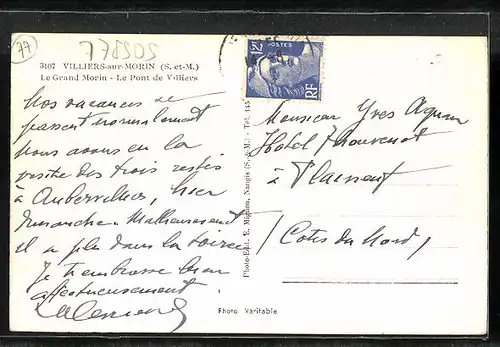 77
77B505
3107 VILLIERS-sur-MORIN (S.-et-M.)
Le Grand Morin - Le Pont de Villiers
Nos vacances se
passent normalement
nous avons eu la
visite des trois
à Aubervilliers, hier
dimanche. Malheureusement
il a plu dans la soirée
Je t'embrasse bien
affectueusement
Photo-Edit. E. Mignon, Nangis (S.-&-M.) - Tél. 145
12F
POSTES
RF
Monsieur Yves
Hotel Thouvenot
à
(Cotes du Nord)
Photo Véritable